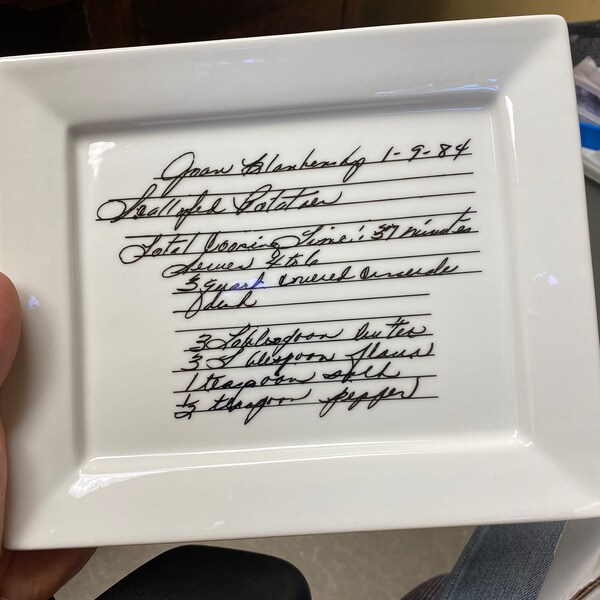 Joan Blankenship 1-9-84
Scalloped Potatoes
Total Cooking Time: 37 minutes
Serves 4 to 6
3 quart covered casserole
dish
3 Tablespoon butter
3 Tablespoon flour
1 teaspoon salt
1/2 teaspoon pepper